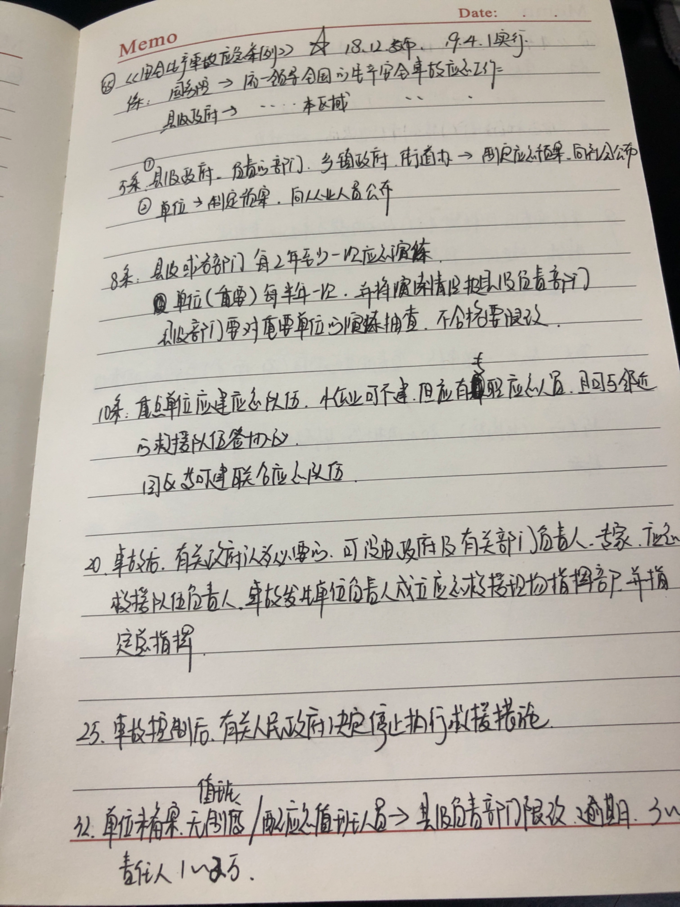 Memo Date:
《安全生产事故应急条例》 ☆ 18.12发布. 19.4.1实行.
条: 国务院 → 统一领导全国的生产安全事故应急工作
县级政府 → ‥‥ 本区域 ‥ ‥
5条. ①县级政府. 负责的部门、乡镇政府. 街道办 → 制定应急预案. 向社会公布
② 单位 → 制定预案, 向从业人员公布
8条: 县级或各部门 每2年至少一次应急演练.
单位(重要) 每半年一次. 并将演练情况报县级负责部门
县级部门要对重要单位的演练抽查. 不合格要限改.
10条: 重点单位应建应急队伍. 小企业可不建. 但应有专职应急人员. 且可与邻近
的救援队伍签协议.
园区类可建联合应急队伍.
20. 事故后. 有关政府认为必要的. 可设由政府及有关部门负责人、专家、应急
救援队伍负责人、事故发生单位负责人成立应急救援现场指挥部. 并指
定总指挥.
25. 事故控制后. 有关人民政府决定停止执行救援措施
值班
32. 单位未备案. 无制度/配应急值班人员 → 县级负责部门限改. 逾期. 3~
责任人1~2万.